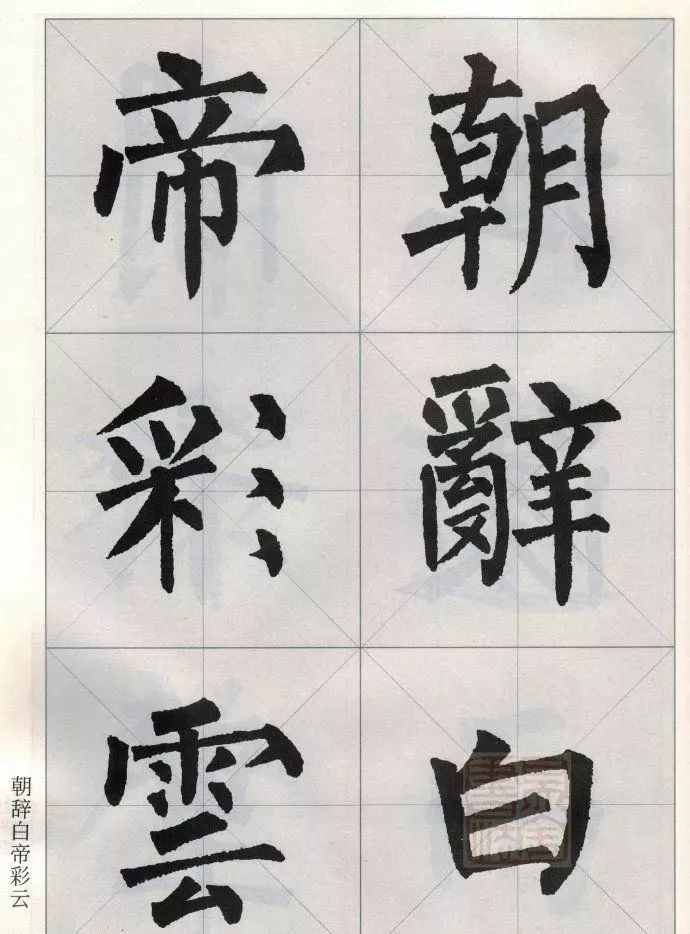 朝辭白
帝彩雲
朝辞白帝彩云